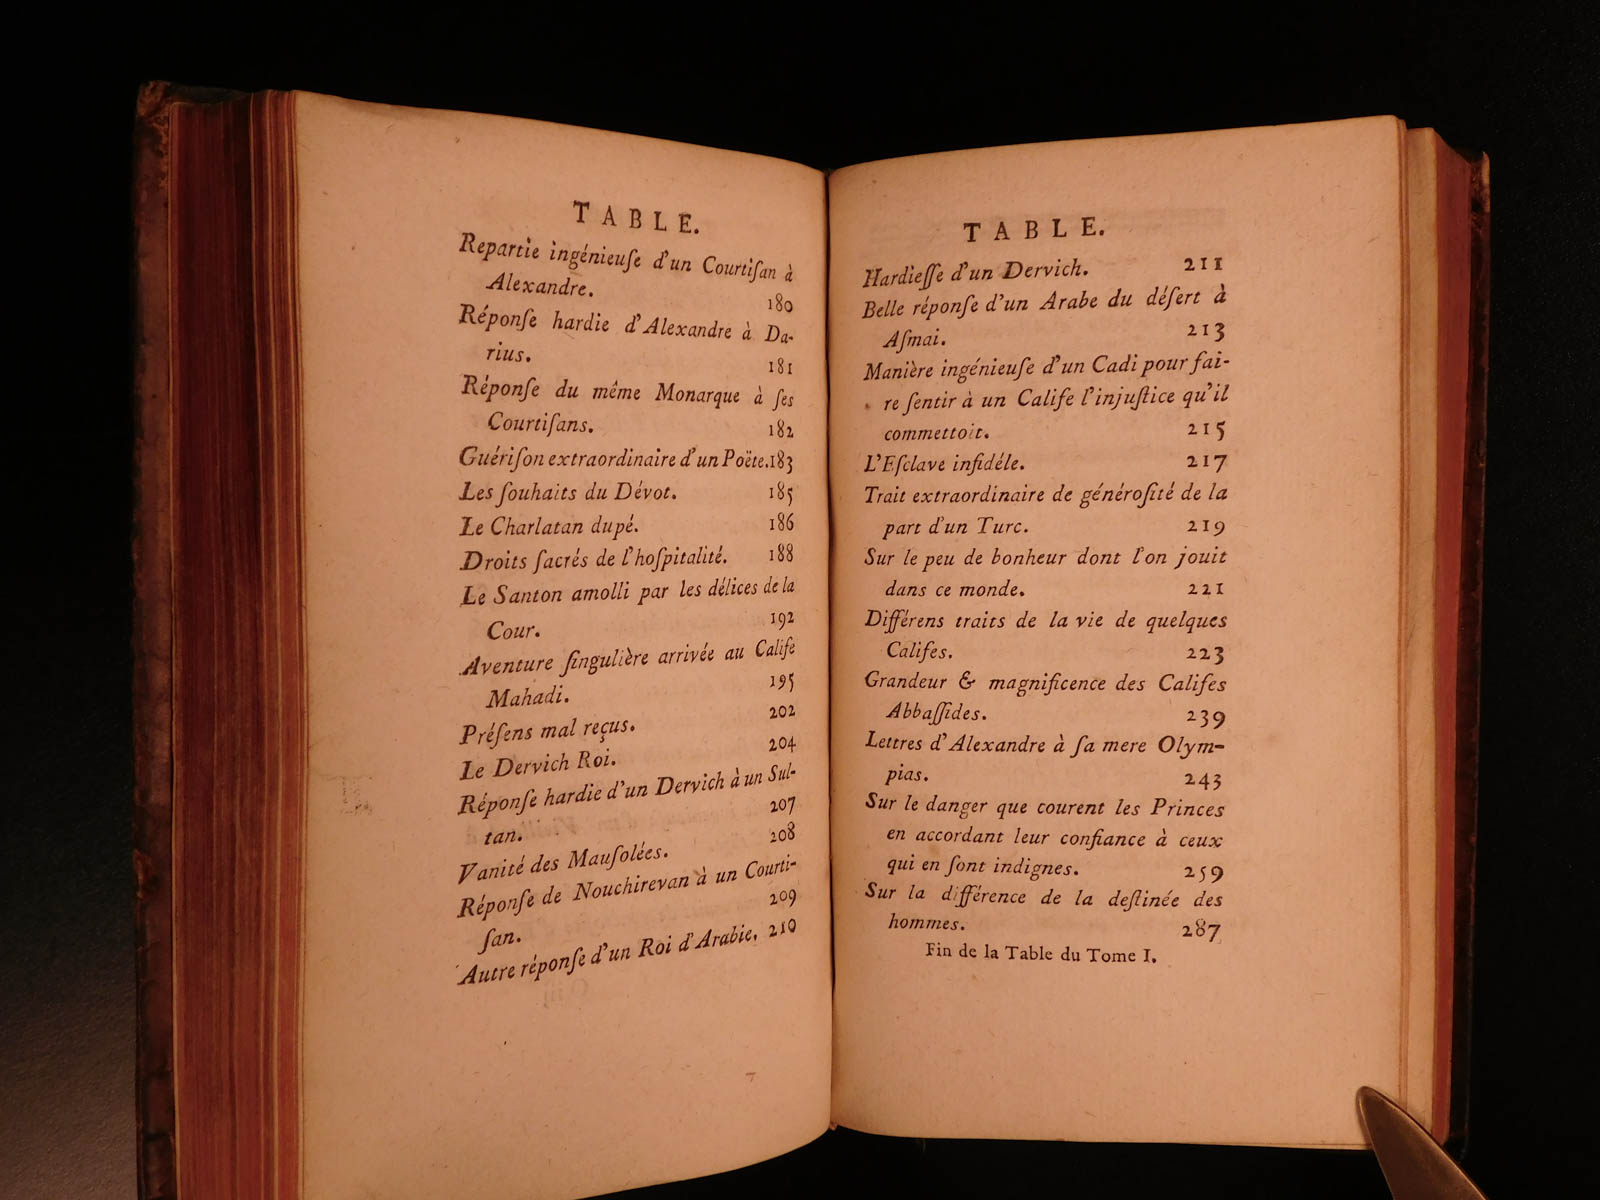 TABLE.
Repartie ingénieuſe d'un Courtiſan à
Alexandre. 180
Réponſe hardie d'Alexandre à Da-
rius. 181
Réponſe du même Monarque à ſes
Courtiſans. 182
Guériſon extraordinaire d'un Poëte. 183
Les ſouhaits du Dévot. 185
Le Charlatan dupé. 186
Droits ſacrés de l'hoſpitalité. 188
Le Santon amolli par les délices de la
Cour. 192
Aventure ſingulière arrivée au Calife
Mahadi. 195
Préſens mal reçus. 202
Le Dervich Roi. 204
Réponſe hardie d'un Dervich à un Sul-
tan. 207
Vanité des Mauſolées. 208
Réponſe de Nouchirevan à un Courti-
ſan. 209
Autre réponſe d'un Roi d'Arabie. 210
TABLE.
Hardieſſe d'un Dervich. 211
Belle réponſe d'un Arabe du déſert à
Aſmai. 213
Manière ingénieuſe d'un Cadi pour fai-
re ſentir à un Calife l'injuſtice qu'il
commettoit. 215
L'Eſclave infidéle. 217
Trait extraordinaire de généroſité de la
part d'un Turc. 219
Sur le peu de bonheur dont l'on jouit
dans ce monde. 221
Différens traits de la vie de quelques
Califes. 223
Grandeur & magnificence des Califes
Abbaſſides. 239
Lettres d'Alexandre à ſa mere Olym-
pias. 243
Sur le danger que courent les Princes
en accordant leur confiance à ceux
qui en ſont indignes. 259
Sur la différence de la deſtinée des
hommes. 287
Fin de la Table du Tome I.